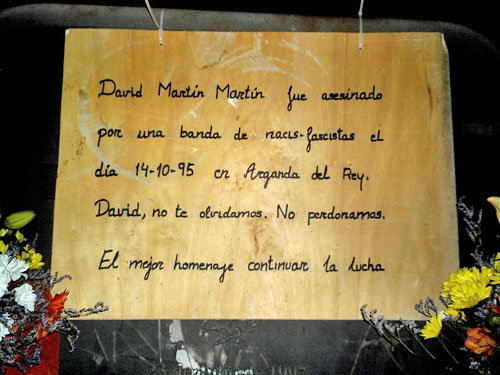 David Martín Martín fue asesinado
por una banda de nacis-fascistas el
día 14-10-95 en Arganda del Rey.
David, no te olvidamos. No perdonamos.
El mejor homenaje continuar la lucha